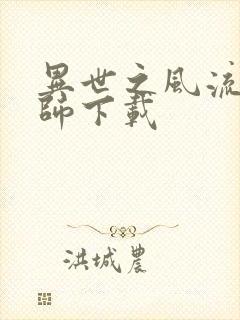 異世之風流
師下載
洪城農